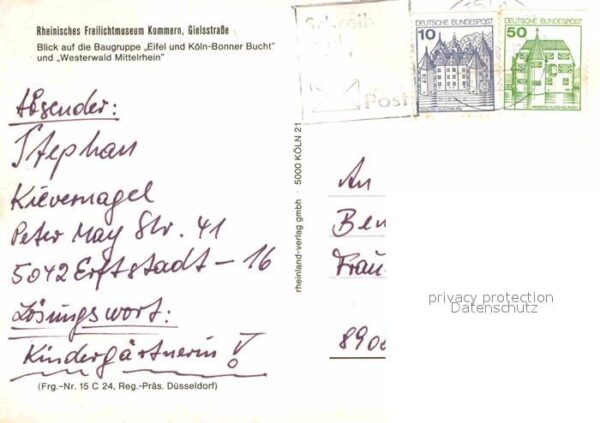 Rheinisches Freilichtmuseum Kommern, Gielsstraße
Blick auf die Baugruppe „Eifel und Köln-Bonner Bucht"
und „Westerwald Mittelrhein"
Schreib
Post
10
DEUTSCHE BUNDESPOST
50
DEUTSCHE BUNDESPOST
Absender:
Stephan
Kievernagel
Peter May Str. 41
5042 Erftstadt – 16
Lösungswort:
Kindergärtnerin!
(Frg.-Nr. 15 C 24, Reg.-Präs. Düsseldorf)
rheinland-verlag gmbh · 5000 KÖLN 21
An
Ben
Frau
890
privacy protection
Datenschutz